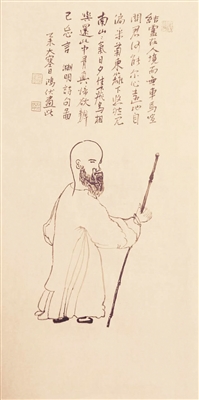 結廬在人境而無車馬喧
問君何能爾心遠地自
偏采菊東籬下悠然見
南山々氣日夕佳飛鳥相
與還此中有真意欲辨
已忘言 淵明詩句
未大寒日鴻畫此